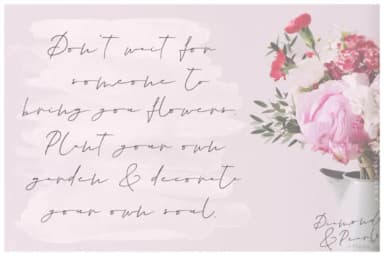 Don't wait for
someone to
bring you flowers.
Plant your own
garden & decorate
your own soul.
Diamonds
& Pearls